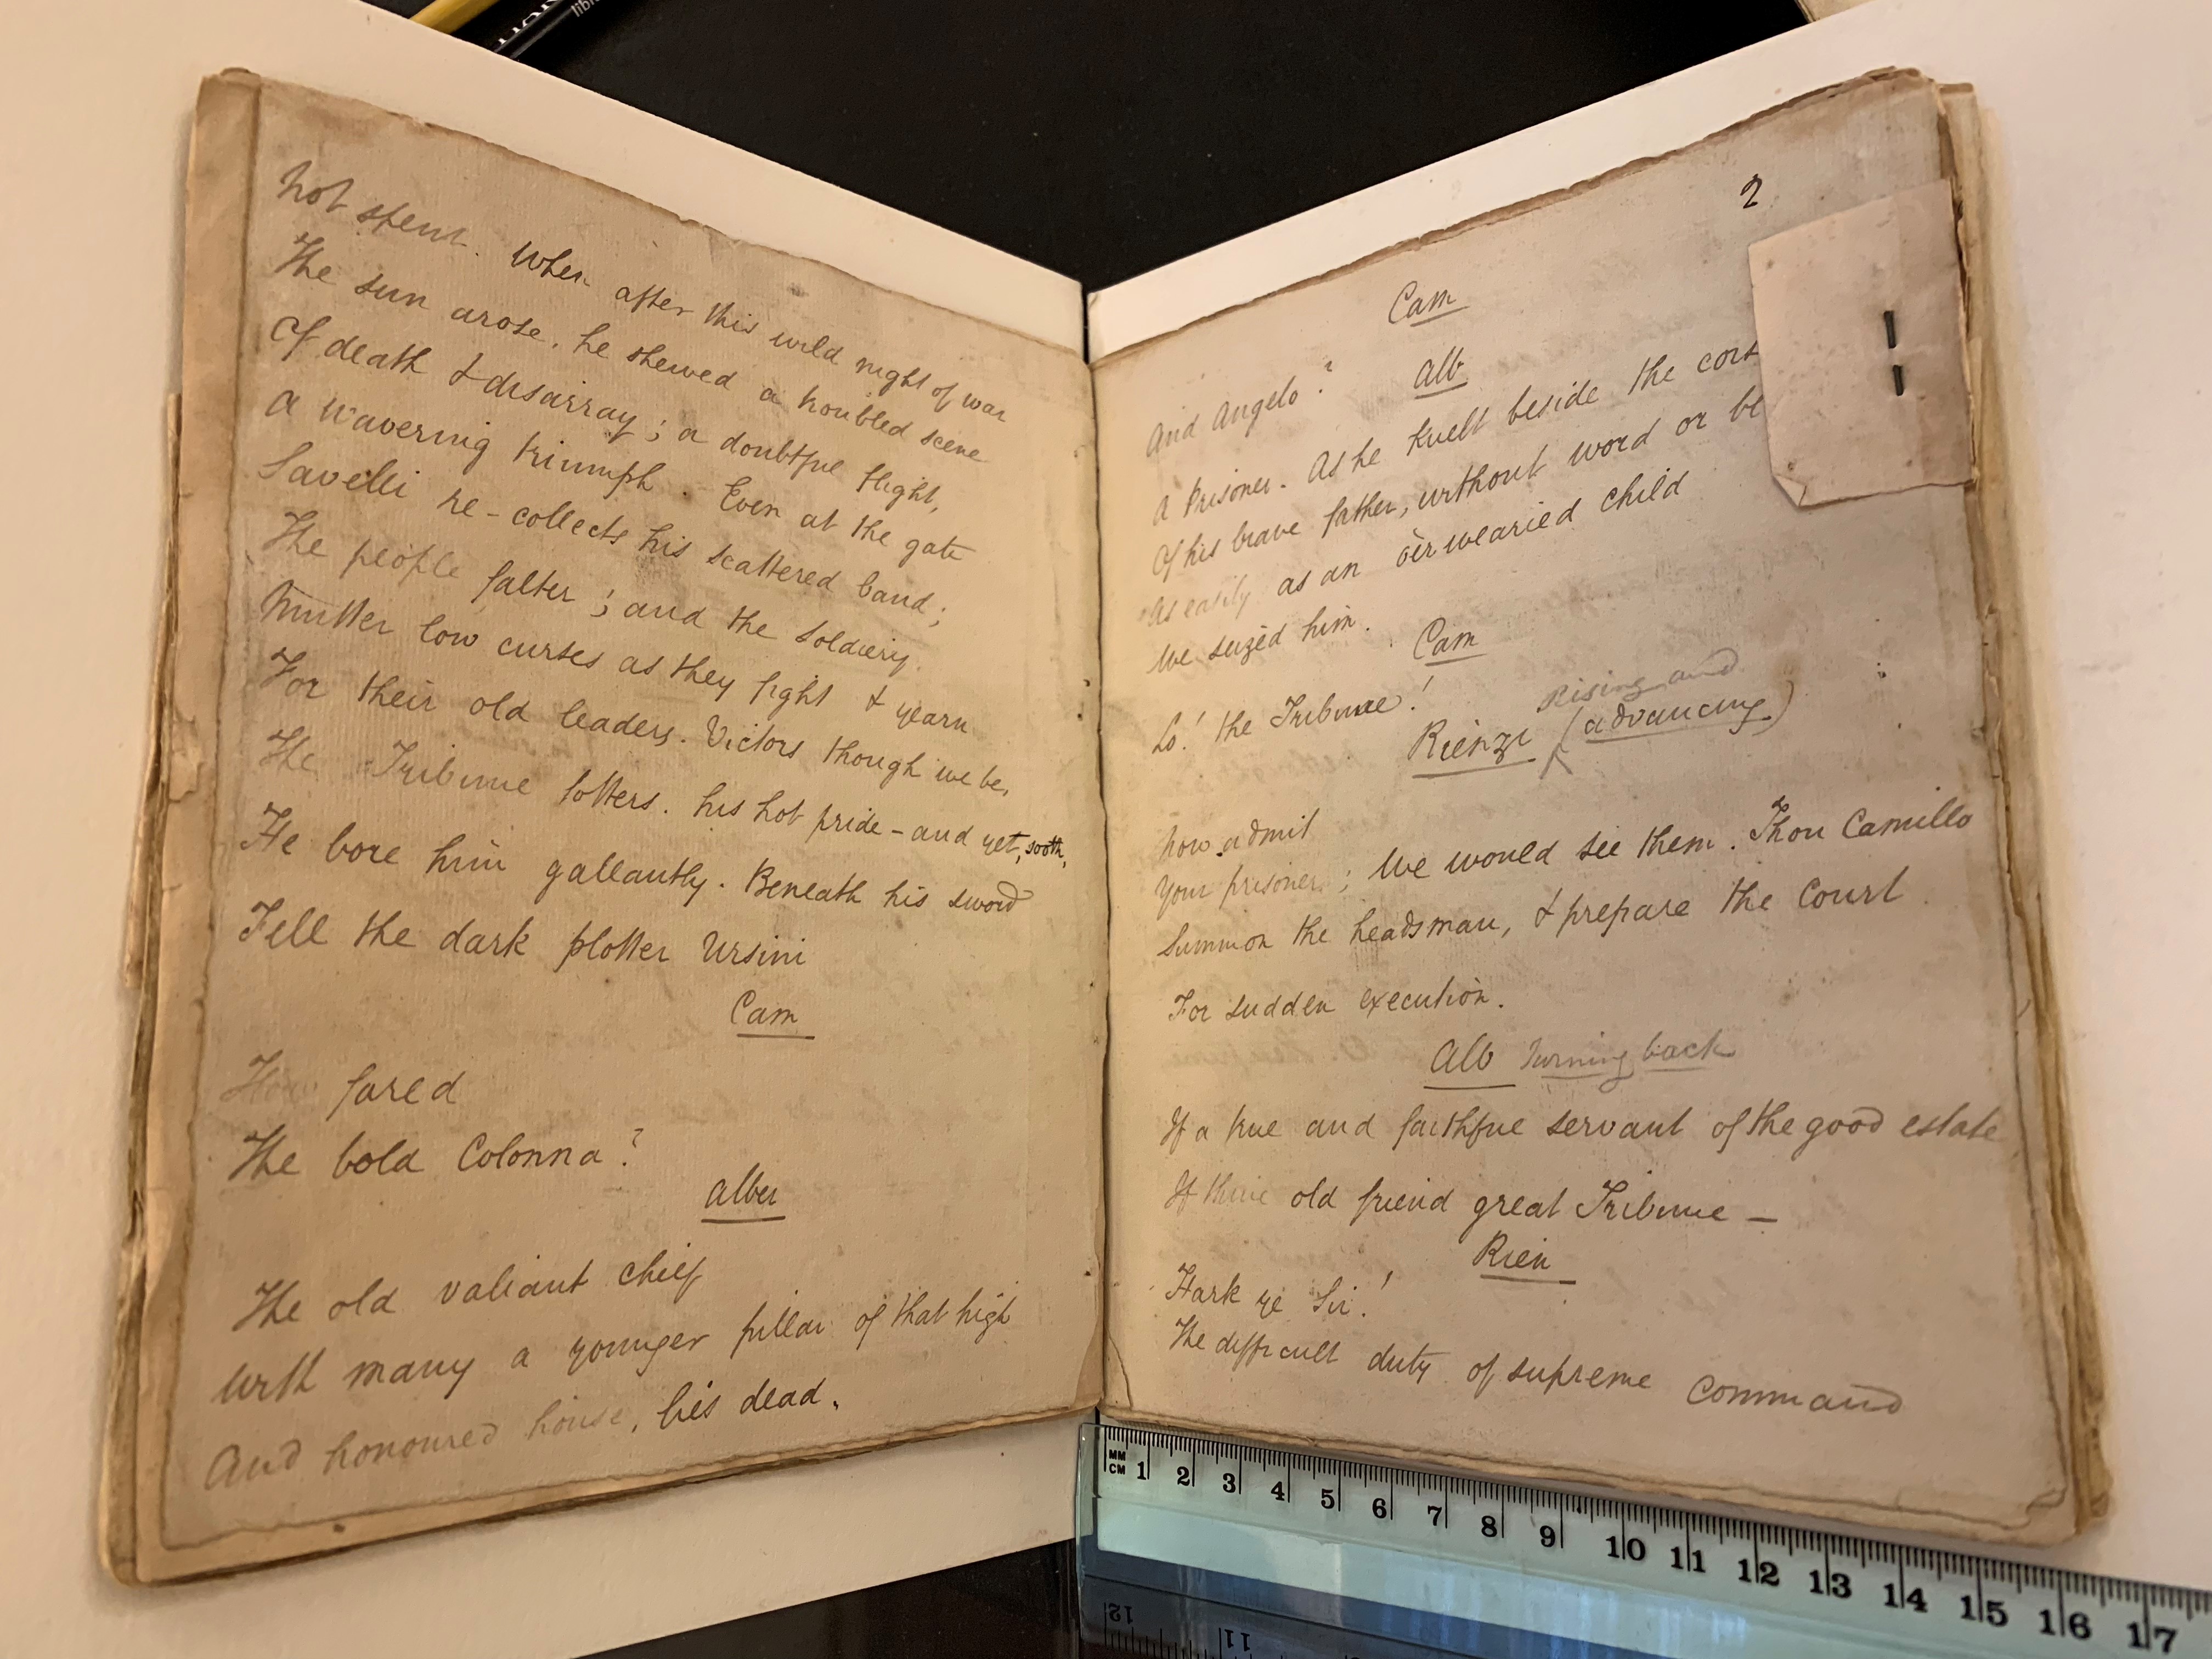 not spent. When after this wild night of war
The sun arose, he shewed a troubled scene
Of death & disarray; a doubtful flight,
A wavering triumph. Even at the gate
Savelli re-collects his scattered band;
The people falter; and the soldiery
Mutter low curses as they fight & yearn
For their old leaders. Victors though we be,
The Tribune totters. his hot pride - and yet, sooth,
He bore him gallantly. Beneath his sword
Fell the dark plotter Ursini
Cam
How fared
The bold Colonna?
Alber
The old valiant chief
With many a younger pillar of that high
And honoured house, lies dead.
2
Cam
And Angelo?
Alb
A prisoner. As he knelt beside the cors
Of his brave father, without word or bl
As easily as an o'erwearied child
We seized him.
Cam
Lo! the Tribune!
Rising and
Rienzi (advancing)
now admit
Your prisoners; We would see them. Thou Camillo
Summon the headsman, & prepare the Court
For sudden execution.
Alb Turning back
If a true and faithful servant of the good estate
If thine old friend great Tribune —
Rien
Hark ye Sir!
The difficult duty of supreme command
MM
CM
1 2 3 4 5 6 7 8 9 10 11 12 13 14 15 16 17
12 11